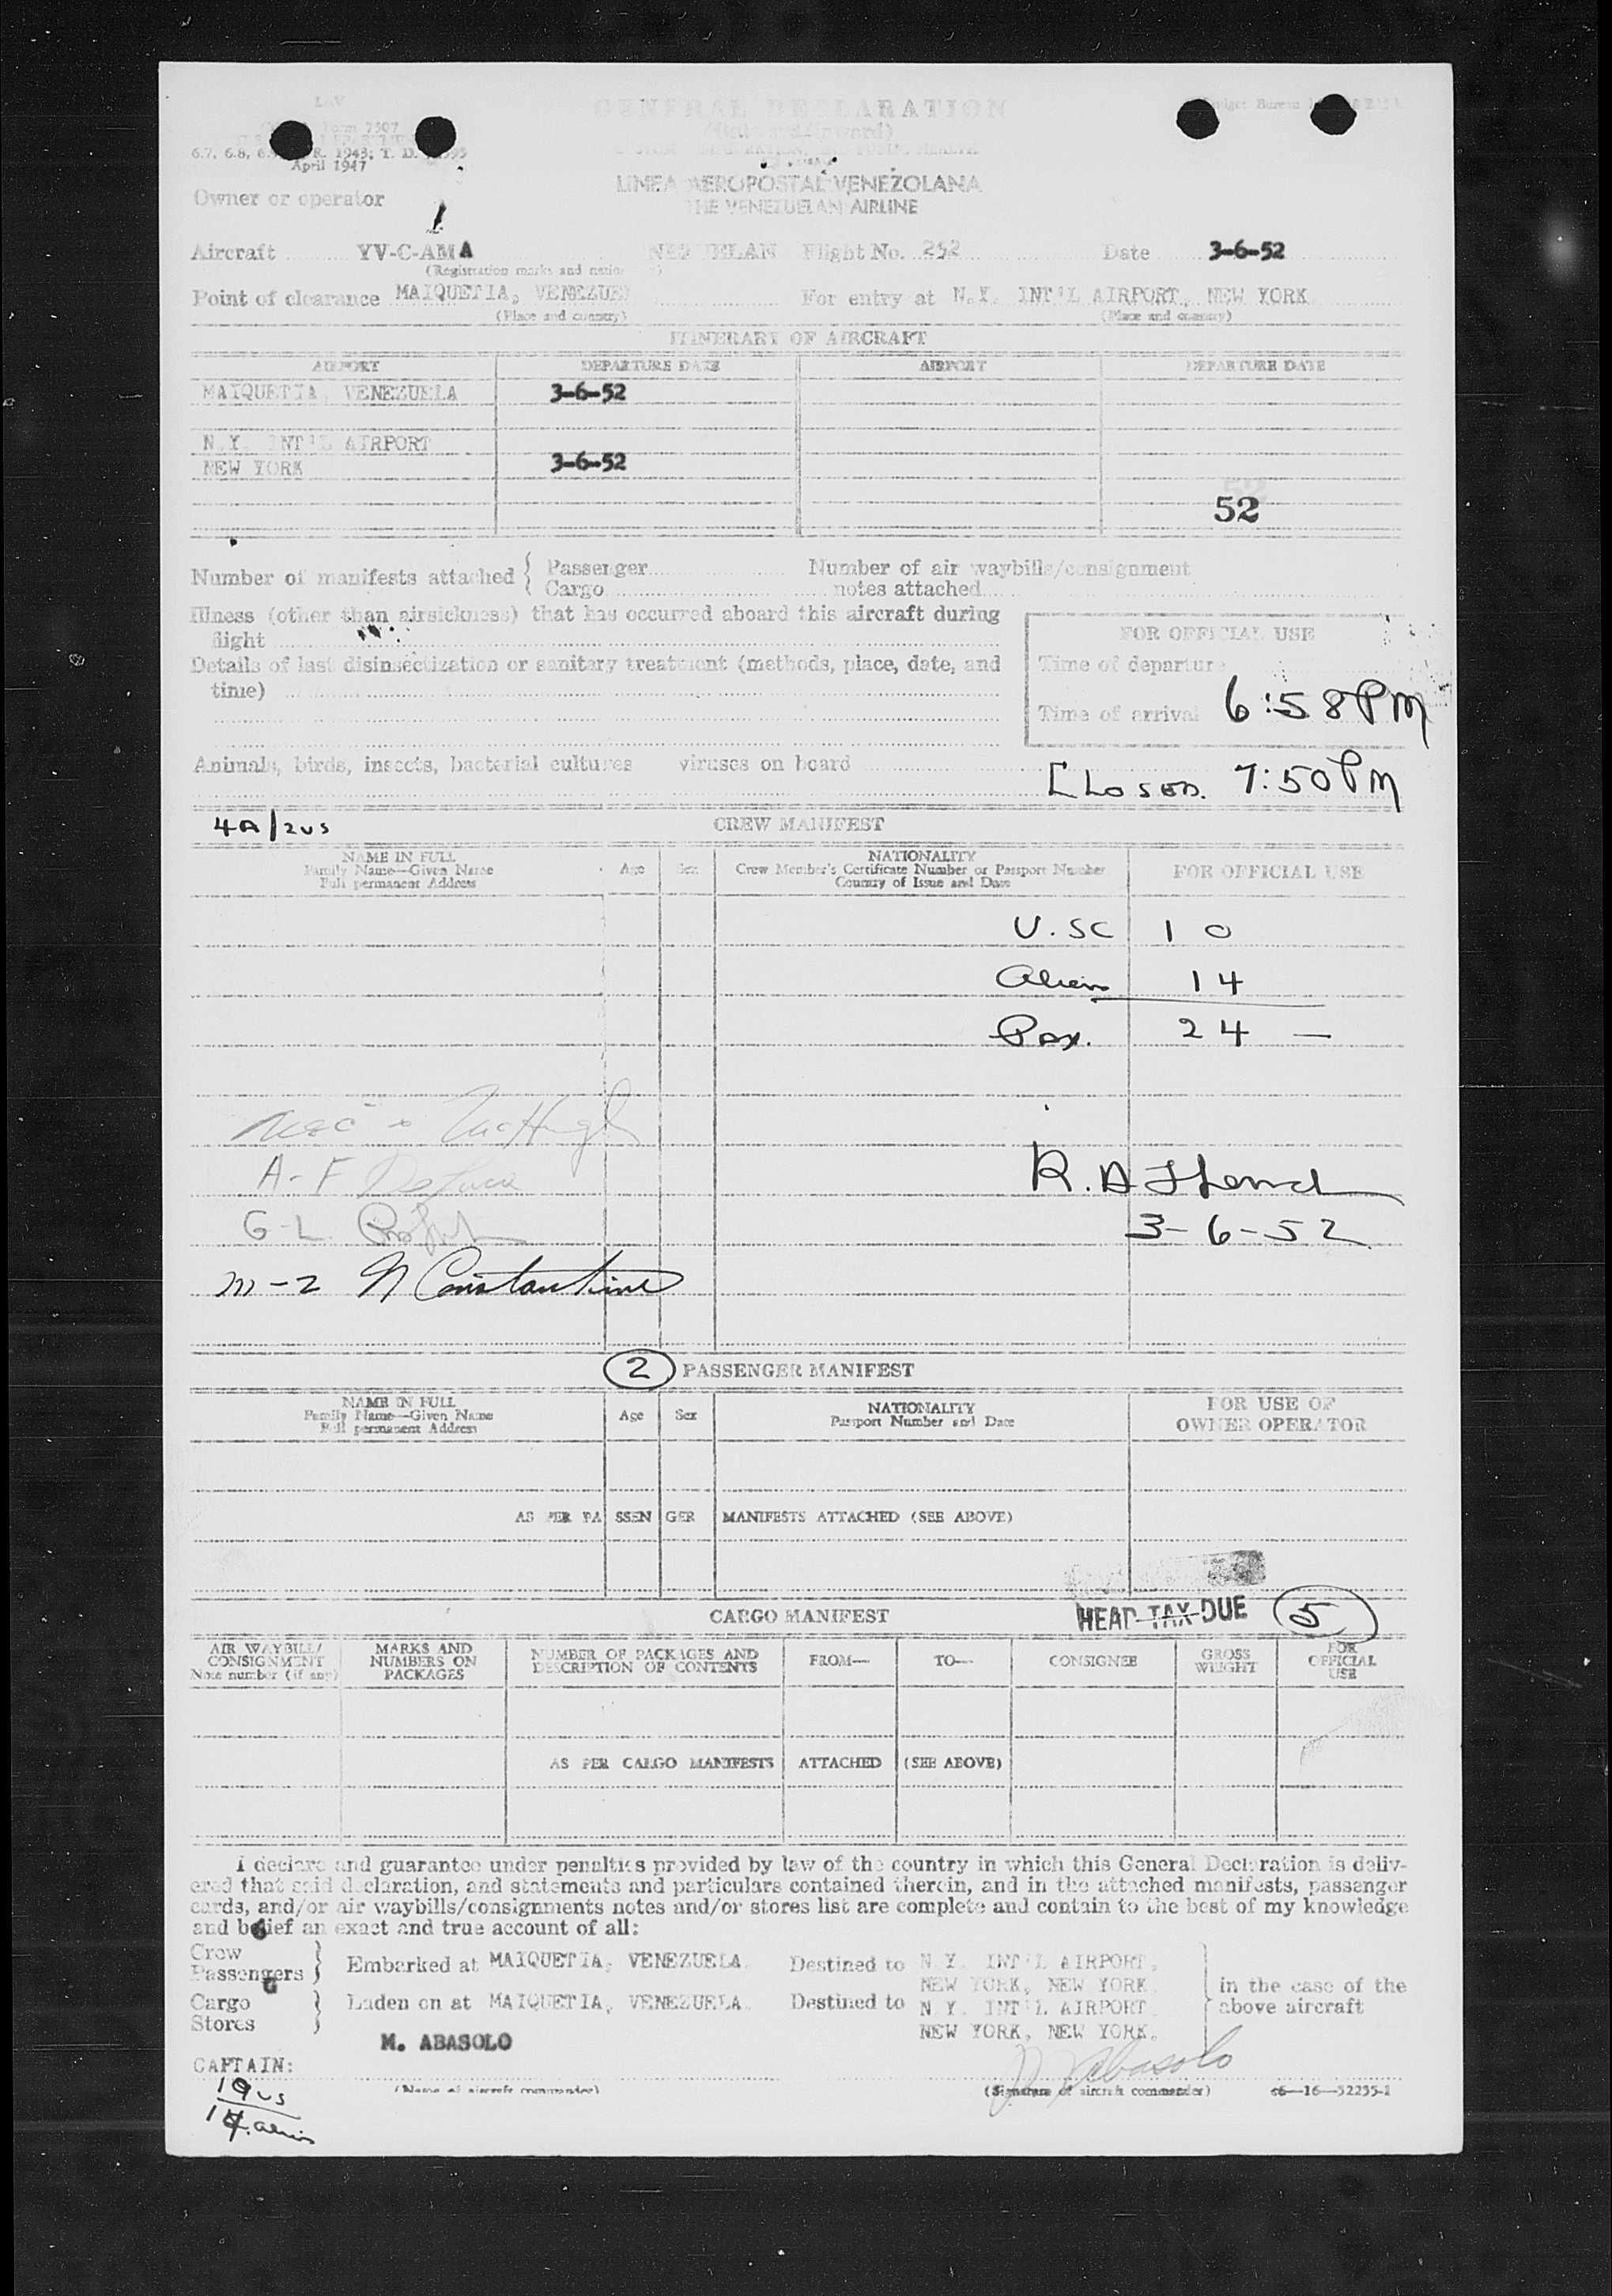 LAV
Form 7507
6.7, 6.8, R. 1943; T. D.
April 1947
GENERAL DECLARATION
LINEA AEROPOSTAL VENEZOLANA
THE VENEZUELAN AIRLINE
Owner or operator
Aircraft YV-C-AMA Flight No. 252 Date 3-6-52
(Registration marks and
Point of clearance MAIQUETIA, For entry at N.Y. INT'L AIRPORT, NEW YORK
(Place and country) (Place and country)
ITINERARY OF AIRCRAFT
AIRPORT DEPARTURE DATE AIRPORT DEPARTURE DATE
MAIQUETIA, VENEZUELA 3-6-52
N.Y. INT'L AIRPORT
NEW YORK 3-6-52
52
Number of manifests attached { Passenger Number of air waybills/consignment
Cargo notes attached
Illness (other than airsickness) that has occurred aboard this aircraft during
flight
FOR OFFICIAL USE
Details of last disinsectization or sanitary treatment (methods, place, date, and
time)
Time of departure
Time of arrival 6:58 PM
Animals, birds, insects, bacterial cultures viruses on board
Closed. 7:50 PM
4A/2us CREW MANIFEST
NAME IN FULL
Family Name—Given Name
Full permanent Address
Age Sex
NATIONALITY
Crew Member's Certificate Number or Passport Number
Country of Issue and Date
FOR OFFICIAL USE
U.SC 10
Alien 14
Pax. 24 —
McHugh
A-F DeLuca
R. A
G-L
3-6-52
M-Z N Constantine
2 PASSENGER MANIFEST
NAME IN FULL
Family Name—Given Name
Full permanent Address
Age Sex
NATIONALITY
Passport Number and Date
FOR USE OF
OWNER OPERATOR
AS PER PASSENGER MANIFESTS ATTACHED (SEE ABOVE)
CARGO MANIFEST HEAD TAX DUE 5
AIR WAYBILL/
CONSIGNMENT
Note number (if any)
MARKS AND
NUMBERS ON
PACKAGES
NUMBER OF PACKAGES AND
DESCRIPTION OF CONTENTS
FROM— TO— CONSIGNEE
GROSS
WEIGHT
FOR
OFFICIAL
USE
AS PER CARGO MANIFESTS ATTACHED (SEE ABOVE)
I declare and guarantee under penalties provided by law of the country in which this General Declaration is deliv-
ered that said declaration, and statements and particulars contained therein, and in the attached manifests, passenger
cards, and/or air waybills/consignments notes and/or stores list are complete and contain to the best of my knowledge
and belief an exact and true account of all:
Crew
Passengers } Embarked at MAIQUETIA, VENEZUELA. Destined to N.Y. INT'L AIRPORT,
NEW YORK, NEW YORK
in the case of the
above aircraft
Cargo
Stores } Laden on at MAIQUETIA, VENEZUELA. Destined to N.Y. INT'L AIRPORT
NEW YORK, NEW YORK.
M. ABASOLO
CAPTAIN:
Abasolo
(Name of aircraft commander) (Signature of aircraft commander) 16—52255-1